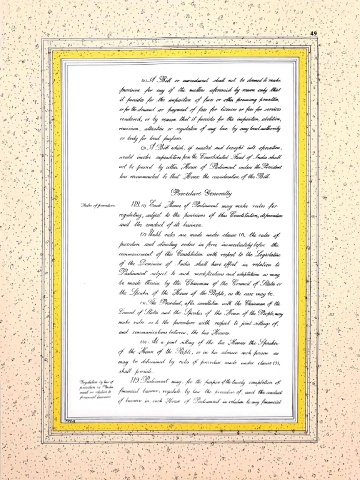 49
(2) A Bill or amendment shall not be deemed to make
provision for any of the matters aforesaid by reason only that
it provides for the imposition of fines or other pecuniary penalties,
or for the demand or payment of fees for licences or fees for services
rendered, or by reason that it provides for the imposition, abolition,
remission, alteration or regulation of any tax by any local authority
or body for local purposes.
(3) A Bill which, if enacted and brought into operation,
would involve expenditure from the Consolidated Fund of India shall
not be passed by either House of Parliament unless the President
has recommended to that House the consideration of the Bill.
Procedure Generally
Rules of procedure.
118. (1) Each House of Parliament may make rules for
regulating, subject to the provisions of this Constitution, its procedure
and the conduct of its business.
(2) Until rules are made under clause (1), the rules of
procedure and standing orders in force immediately before the
commencement of this Constitution with respect to the Legislature
of the Dominion of India shall have effect in relation to
Parliament subject to such modifications and adaptations as may
be made therein by the Chairman of the Council of States or
the Speaker of the House of the People, as the case may be.
(3) The President, after consultation with the Chairman of the
Council of States and the Speaker of the House of the People, may
make rules as to the procedure with respect to joint sittings of,
and communications between, the two Houses.
(4) At a joint sitting of the two Houses the Speaker
of the House of the People, or in his absence such person as
may be determined by rules of procedure made under clause (3),
shall preside.
Regulation by law of
procedure in Parlia-
ment in relation to
financial business.
119. Parliament may, for the purpose of the timely completion of
financial business, regulate by law the procedure of, and the conduct
of business in, each House of Parliament in relation to any financial